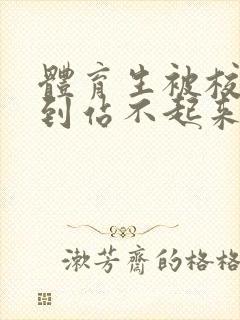 體育生被校
到佔不起來
漱芳齋的格格